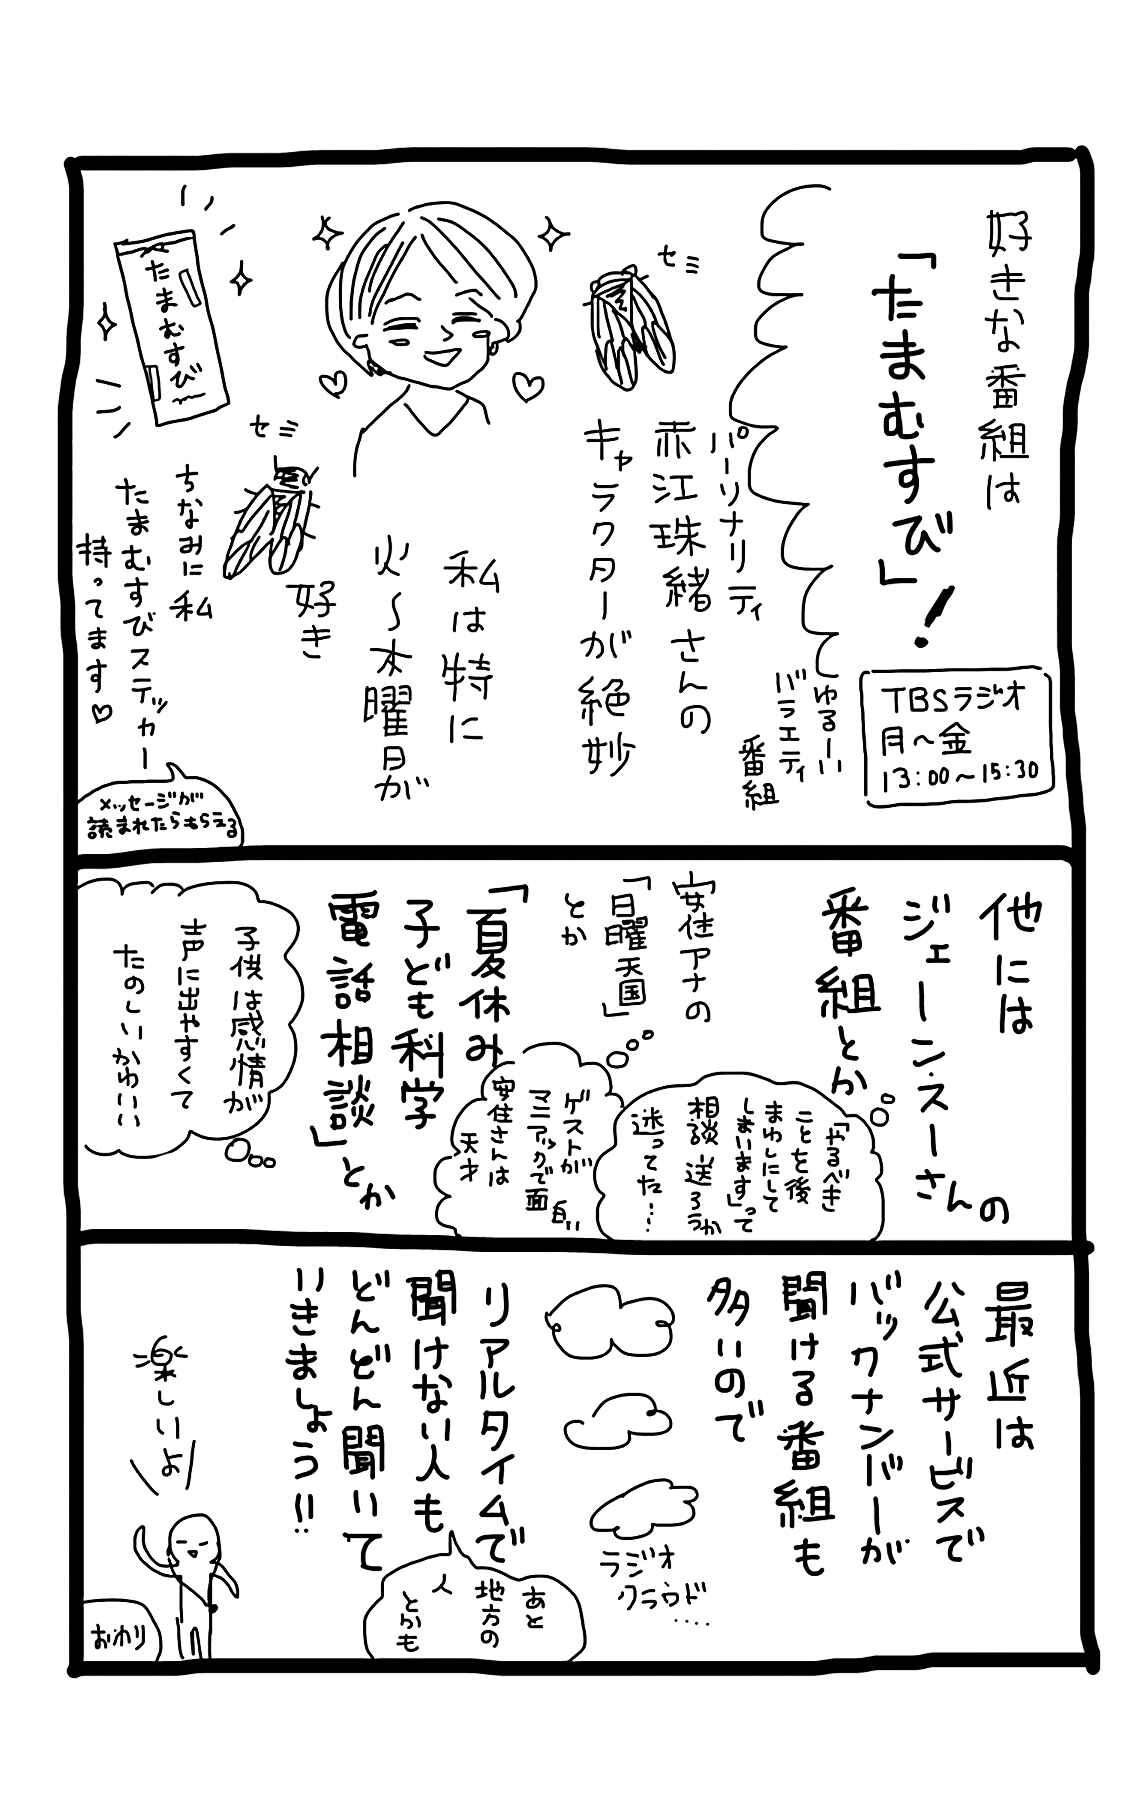 好きな番組は
「たまむすび」!
TBSラジオ
月～金
13:00～15:30
ゆるーい
バラエティ
番組
パーソナリティ
赤江珠緒さんの
キャラクターが絶妙
セミ
私は特に
火～木曜日が
好き
セミ
たまむすび
ちなみに私
たまむすびステッカー
持ってます♡
メッセージが
読まれたらもらえる
他には
ジェーン・スーさんの
番組とか
「やるべき
ことを後
まわしにして
しまいます」って
相談送ろうか
迷ってた……
安住アナの
「日曜天国」
とか
ゲストが
マニアックで面白い
安住さんは
天才
「夏休み
子ども科学
電話相談」とか
子供は感情が
声に出やすくて
たのしいかわいい
最近は
公式サービスで
バックナンバーが
聞ける番組も
多いので
ラジオ
クラウド
....
リアルタイムで
聞けない人も
どんどん聞いて
いきましょう!!
あと
地方の
人
とかも
楽しいよ
おわり